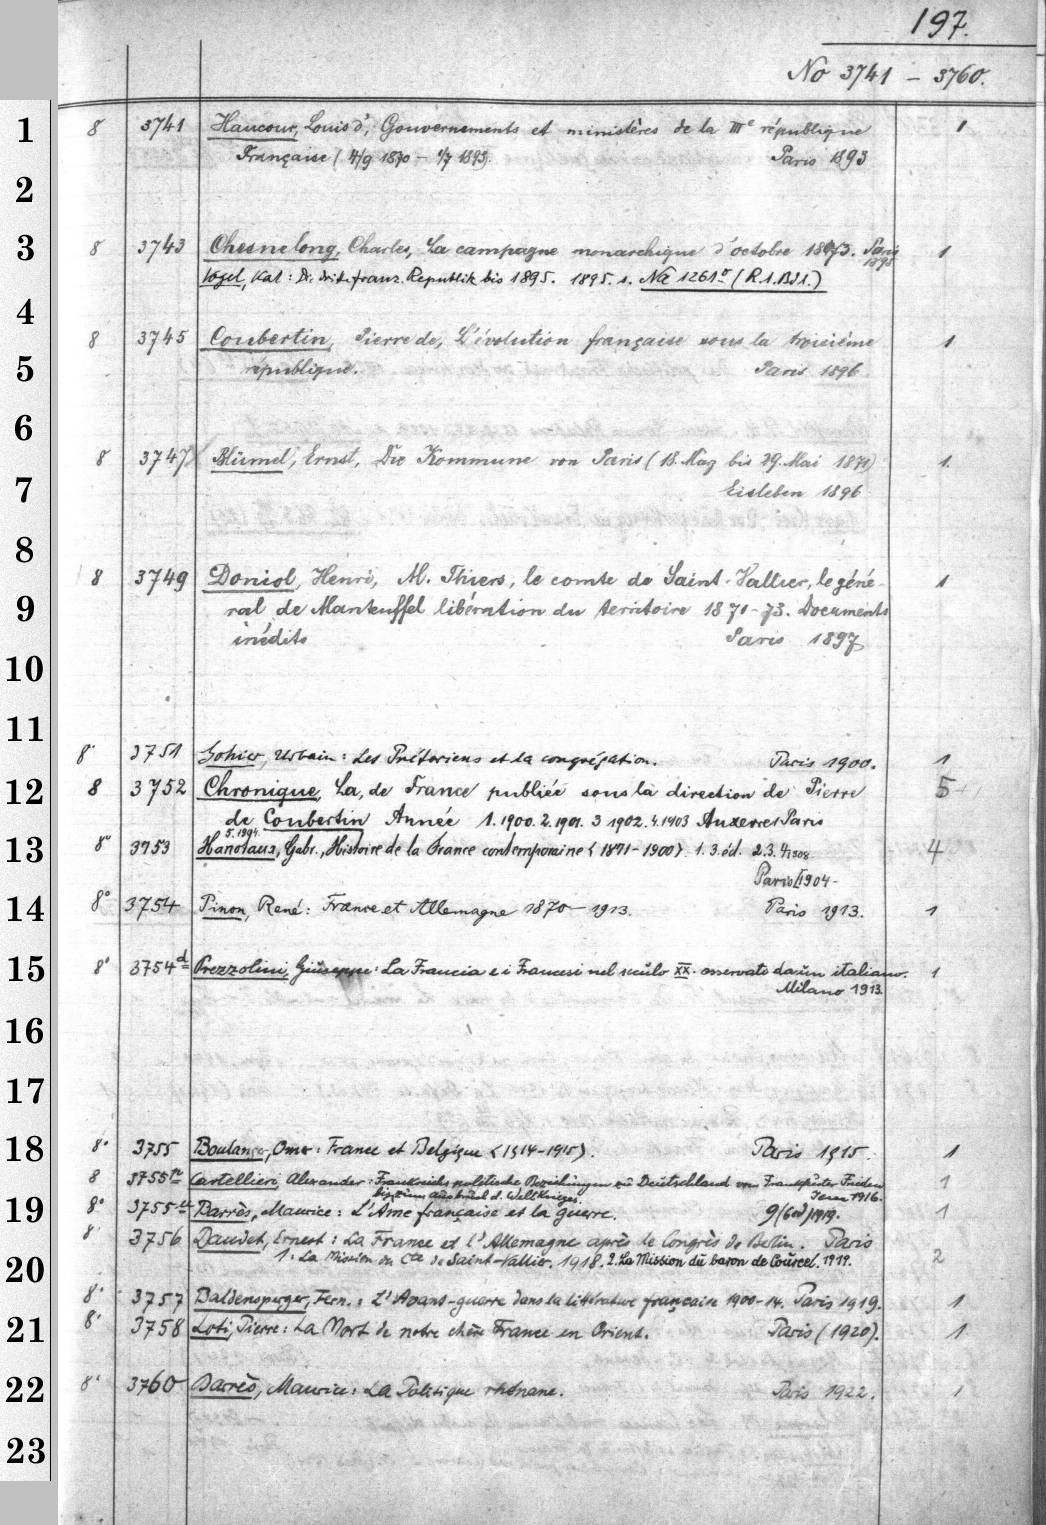 197.
No 3741 – 3760.
1
8 3741 Haucour, Louis d', Gouvernements et ministères de la IIIe république 1
Française (4/9 1870 – 1/7 1893). Paris 1893
2
3
8 3743 Chesnelong, Charles, La campagne monarchique d'octobre 1873. Paris 1895 1
Vogel, Kat: Di. dritte franz. Republik bis 1895. 1895. 1. Na 1261 (R.1.Bd1.)
4
8 3745 Coubertin, Pierre de, L'évolution française sous la troisième 1
5
république. Paris 1896
6
8 3747 Blümel, Ernst, Die Kommune von Paris (18. Maz bis 29. Mai 1871) 1.
7
Eisleben 1896
8
8 3749 Doniol, Henri, M. Thiers, le comte de Saint-Vallier, le géné- 1
9
ral de Manteuffel libération du territoire 1871-73. Documents
inédits Paris 1897
10
11
8° 3751 Gohier, Urbain: Les Prétoriens et la congrégation. Paris 1900. 1
12
8 3752 Chronique, La, de France publiée sous la direction de Pierre 5
de Coubertin Année 1.1900. 2.1901. 3 1902. 4.1903 Auxerre Paris
5.1904.
13
8° 3753 Hanotaux, Gabr., Histoire de la France contemporaine <1871-1900> 1. 3. éd. 2.3.4 1908. 4
Paris 1904-
14
8° 3754 Pinon, René: France et Allemagne 1870 – 1913. Paris 1913. 1
15
8° 3754d Prezzolini, Giuseppe: La Francia e i Francesi nel secolo XX. osservati da un italiano. 1
Milano 1913.
16
17
18
8° 3755 Boulanger, Omer: France et Belgique <1914-1915>. Paris 1915. 1
8 3755 Cartellieri, Alexander: Frankreichs politische Beziehungen zu Deutschland vom Frankfurter Frieden 1
bis zum Ausbruch d. Weltkrieges. Jena 1916.
19
8° 3755 Barrès, Maurice: L'Ame française et la guerre. 1
8° 3756 Daudet, Ernest: La France et l'Allemagne après le Congrès de Berlin. Paris 2
20
1. La Mission du Cte de Saint-Vallier. 1918. 2. La Mission du baron de Courcel. 1919.
8° 3757 Baldensperger, Fern.: L'Avant-guerre dans la littérature française 1900-14. Paris 1919. 1
21
8° 3758 Loti, Pierre: La Mort de notre chère France en Orient. Paris (1920). 1
22
8° 3760 Barrès, Maurice: La Politique rhénane. Paris 1922. 1
23